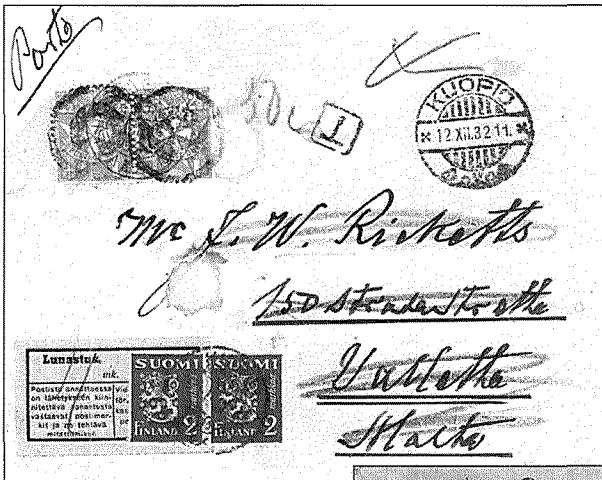 Porto
50 c
1
KUOPIO
12.XII.32 11.
Mr J. W. Ricketts
150 Strada Stretta
Valletta
Malta
Lunastus.
mk.
Postista annettaessa
on lähetykseen kiin-
nitettävä lunastusta
vastaavat postimer-
kit ja ne tehtävä
mitättömiksi.
SUOMI SUOMI
FINLAND 2 FINLAND 2